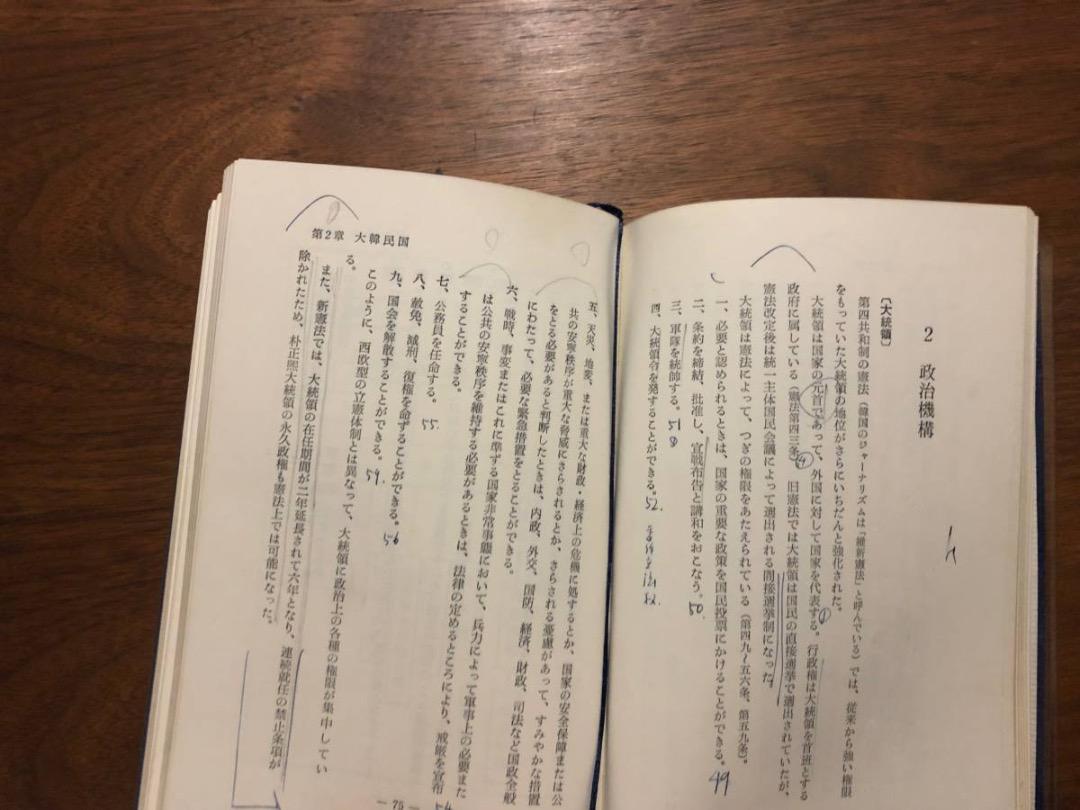 2 政治機構
〔大統領〕
第四共和制の憲法（韓国のジャーナリズムは「維新憲法」と呼んでいる）では、従来から強い権限
をもっていた大統領の地位がさらにいちだんと強化された。
大統領は国家の元首であって、外国に対して国家を代表する。行政権は大統領を首班とする
政府に属している（憲法第四三条）。旧憲法では大統領は国民の直接選挙で選出されていたが、
憲法改定後は統一主体国民会議によって選出される間接選挙制になった。
大統領は憲法によって、つぎの権限をあたえられている（第四九〜五六条、第五九条）。
一、必要と認められるときは、国家の重要な政策を国民投票にかけることができる。 49
二、条約を締結、批准し、宣戦布告と講和をおこなう。 50
三、軍隊を統帥する。 51
四、大統領令を発することができる。 52.
第2章 大韓民国
五、天災、地変、または重大な財政・経済上の危機に処するとか、国家の安全保障または公
共の安寧秩序が重大な脅威にさらされるとか、さらされる憂慮があって、すみやかな措置
をとる必要があると判断したときは、内政、外交、国防、経済、財政、司法など国政全般
にわたって、必要な緊急措置をとることができる。
六、戦時、事変またはこれに準ずる国家非常事態において、兵力によって軍事上の必要また
は公共の安寧秩序を維持する必要があるときは、法律の定めるところにより、戒厳を宣布
することができる。
七、公務員を任命する。 55.
八、赦免、減刑、復権を命ずることができる。 56
九、国会を解散することができる。 59.
このように、西欧型の立憲体制とは異なって、大統領に政治上の各種の権限が集中してい
る。
また、新憲法では、大統領の在任期間が二年延長されて六年となり、連続就任の禁止条項が
除かれたため、朴正煕大統領の永久政権も憲法上では可能になった。
— 75 —